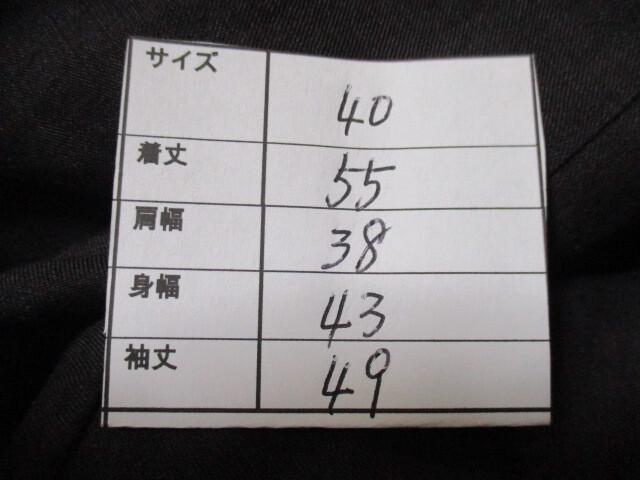 サイズ 40
着丈 55
肩幅 38
身幅 43
袖丈 49